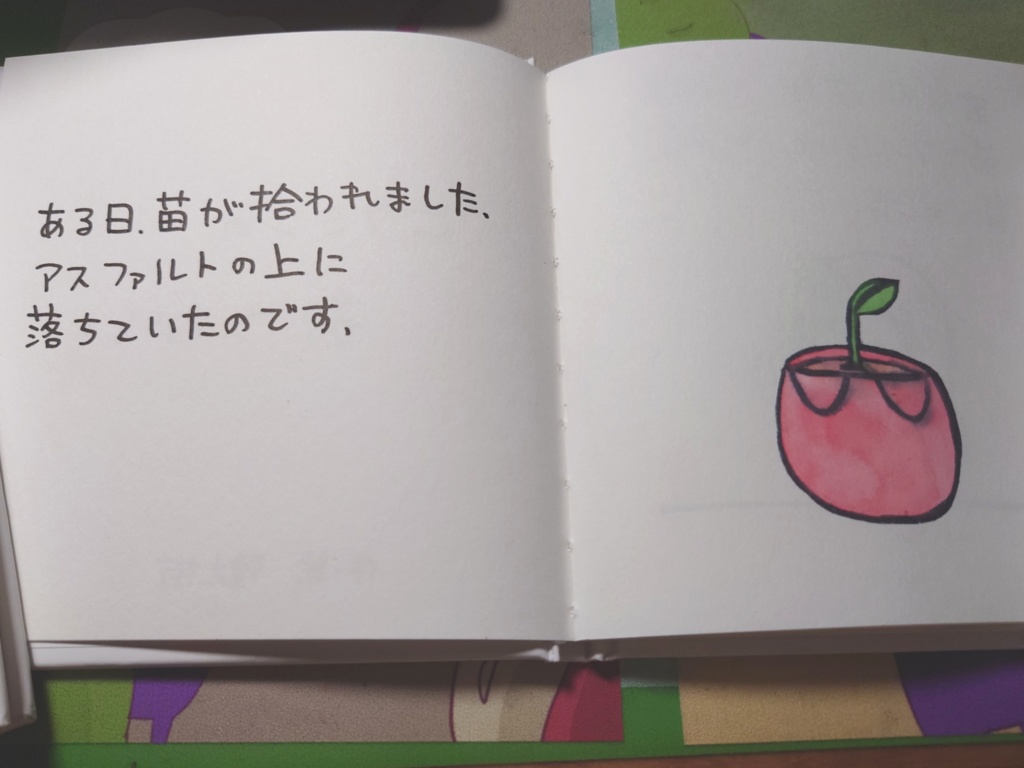 ある日、苗が拾われました、
アスファルトの上に
落ちていたのです。